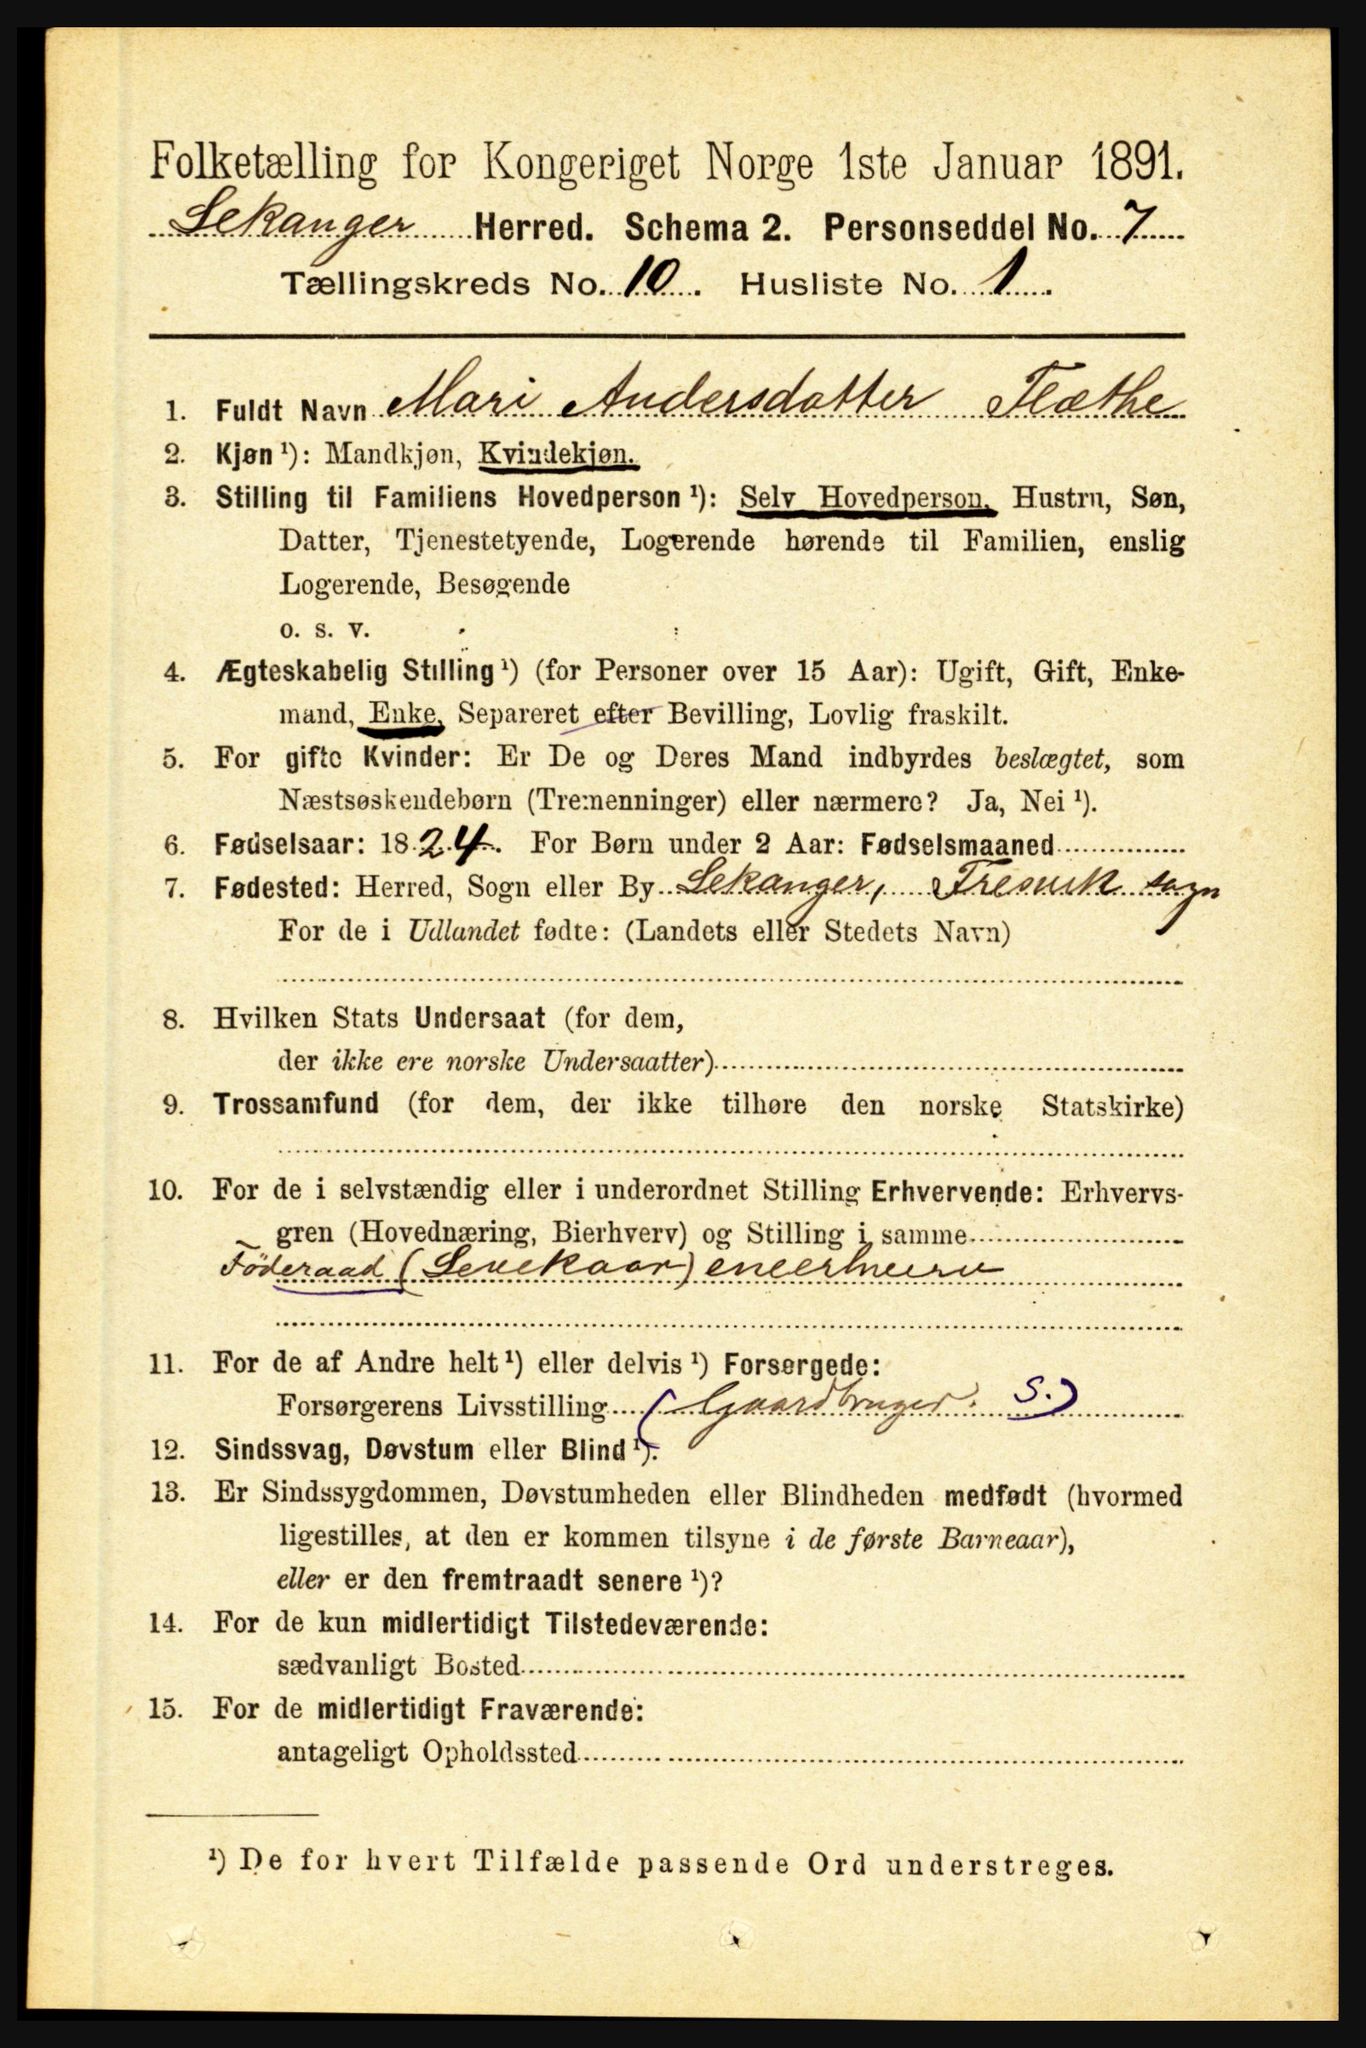 Folketælling for Kongeriget Norge 1ste Januar 1891.
Lekanger Herred. Schema 2. Personseddel No. 7
Tællingskreds No. 10. Husliste No. 1.
1. Fuldt Navn Mari Andersdatter Flæthe
2. Kjøn ¹): Mandkjøn, Kvindekjøn.
3. Stilling til Familiens Hovedperson ¹): Selv Hovedperson, Hustru, Søn,
Datter, Tjenestetyende, Logerende hørende til Familien, enslig
Logerende, Besøgende
o. s. v.
4. Ægteskabelig Stilling ¹) (for Personer over 15 Aar): Ugift, Gift, Enke-
mand, Enke, Separeret efter Bevilling, Lovlig fraskilt.
5. For gifte Kvinder: Er De og Deres Mand indbyrdes beslægtet, som
Næstsøskendebørn (Tremenninger) eller nærmere? Ja, Nei ¹).
6. Fødselsaar: 1824. For Børn under 2 Aar: Fødselsmaaned
7. Fødested: Herred, Sogn eller By Lekanger, Fresvik sogn
For de i Udlandet fødte: (Landets eller Stedets Navn)
8. Hvilken Stats Undersaat (for dem,
der ikke ere norske Undersaatter)
9. Trossamfund (for dem, der ikke tilhøre den norske Statskirke)
10. For de i selvstændig eller i underordnet Stilling Erhvervende: Erhvervs-
gren (Hovednæring, Bierhverv) og Stilling i samme
Föderaad (Levekaar)
11. For de af Andre helt ¹) eller delvis ¹) Forsørgede:
Forsørgerens Livsstilling (Gaardbruger. S.)
12. Sindssvag, Døvstum eller Blind ¹).
13. Er Sindssygdommen, Døvstumheden eller Blindheden medfødt (hvormed
ligestilles, at den er kommen tilsyne i de første Barneaar),
eller er den fremtraadt senere ¹)?
14. For de kun midlertidigt Tilstedeværende:
sædvanligt Bosted
15. For de midlertidigt Fraværende:
antageligt Opholdssted
¹) De for hvert Tilfælde passende Ord understreges.